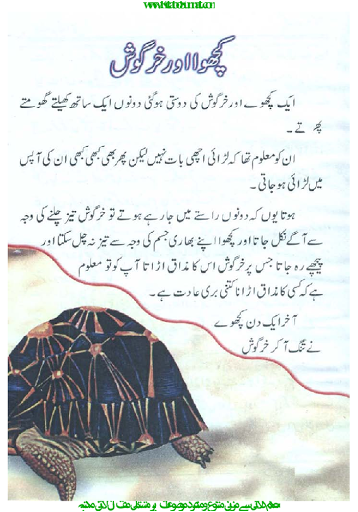 کچھوا اور خرگوش
ایک کچھوے اور خرگوش کی دوستی ہوگئی دونوں ایک ساتھ کھیلتے گھومتے
پھرتے۔
ان کو معلوم تھا کہ لڑائی اچھی بات نہیں لیکن پھر بھی کبھی کبھی ان کی آپس
میں لڑائی ہو جاتی۔
ہوتا یوں کہ دونوں راستے میں جا رہے ہوتے تو خرگوش تیز چلنے کی وجہ
سے آگے نکل جاتا اور کچھوا اپنے بھاری جسم کی وجہ سے تیز نہ چل سکتا اور
پیچھے رہ جاتا جس پر خرگوش اس کا مذاق اڑاتا آپ کو تو معلوم
ہے کہ کسی کا مذاق اڑانا کتنی بری عادت ہے۔
آخر ایک دن کچھوے
نے تنگ آ کر خرگوش